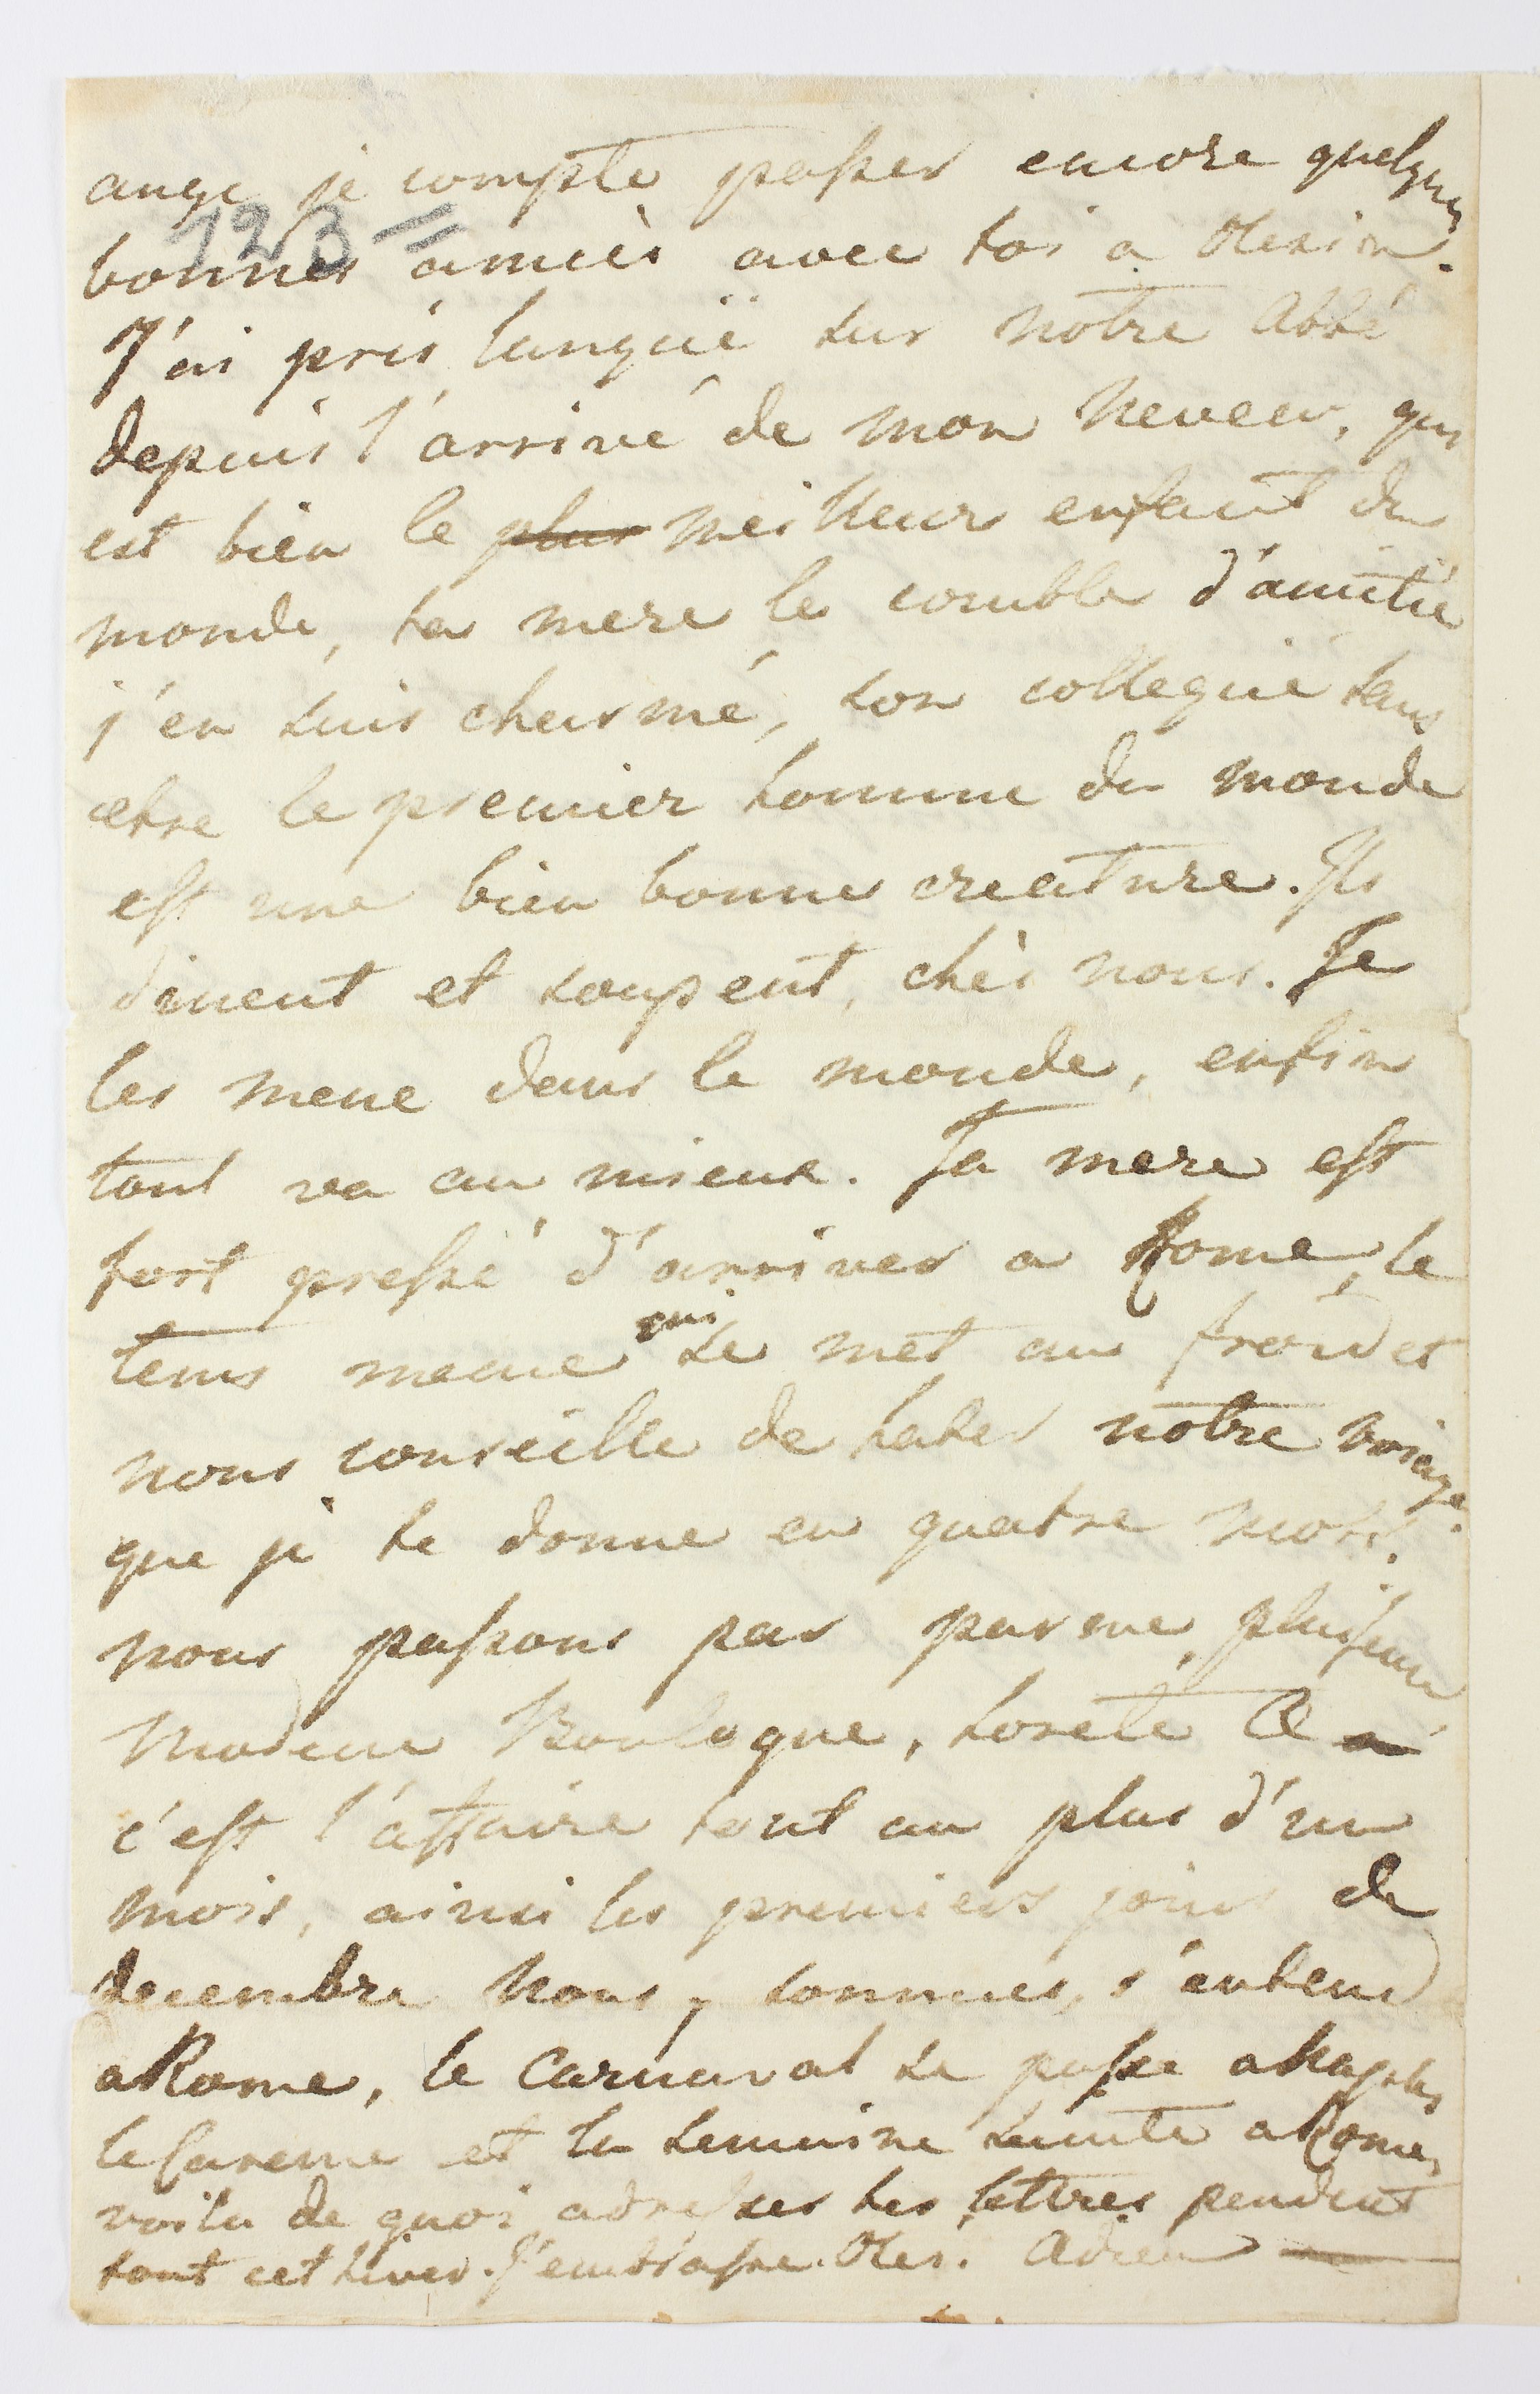 ange je compte passer encore quelques
123
bonnes années avec toi a Olesin.
J'ai pris langüe sur notre Abbé
depuis l'arrivé de mon neveu, qui
est bien le plus meilleur enfant du
monde, ta mere le comble d'amitié
j'en suis charmé, son collegue sans
etre le premier homme du monde
est une bien bonne creature. Ils
dinent et soupent, chés nous. Je
les mene dans le monde, enfin
tout va au mieux. Ta mere est
fort pressé d'arriver a Rome, le
tems meme qui se met au froid et
nous conseille de hater notre voiage.
que je te donne en quatre mots.
nous passons par parme, plaisance
Modene Boulogne, Lorete
c'est l'affaire tout au plus d'un
mois, ainsi les premiers jours de
decembre nous y sommes, s'entend
a Rome, le Carnaval se passe a Naples
le Careme et la semaine sainte a Rome,
voila de quoi adresser tes lettres pendent
tout cet hiver. J'embrasse Oles. Adieu